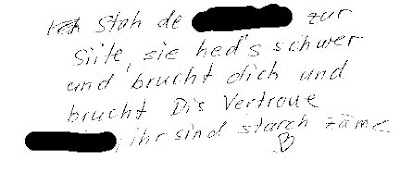 Stah de zur
Siite, sie hed's schwer
und brucht dich und
brucht Dis Vertroue
, ihr sind starch zäme